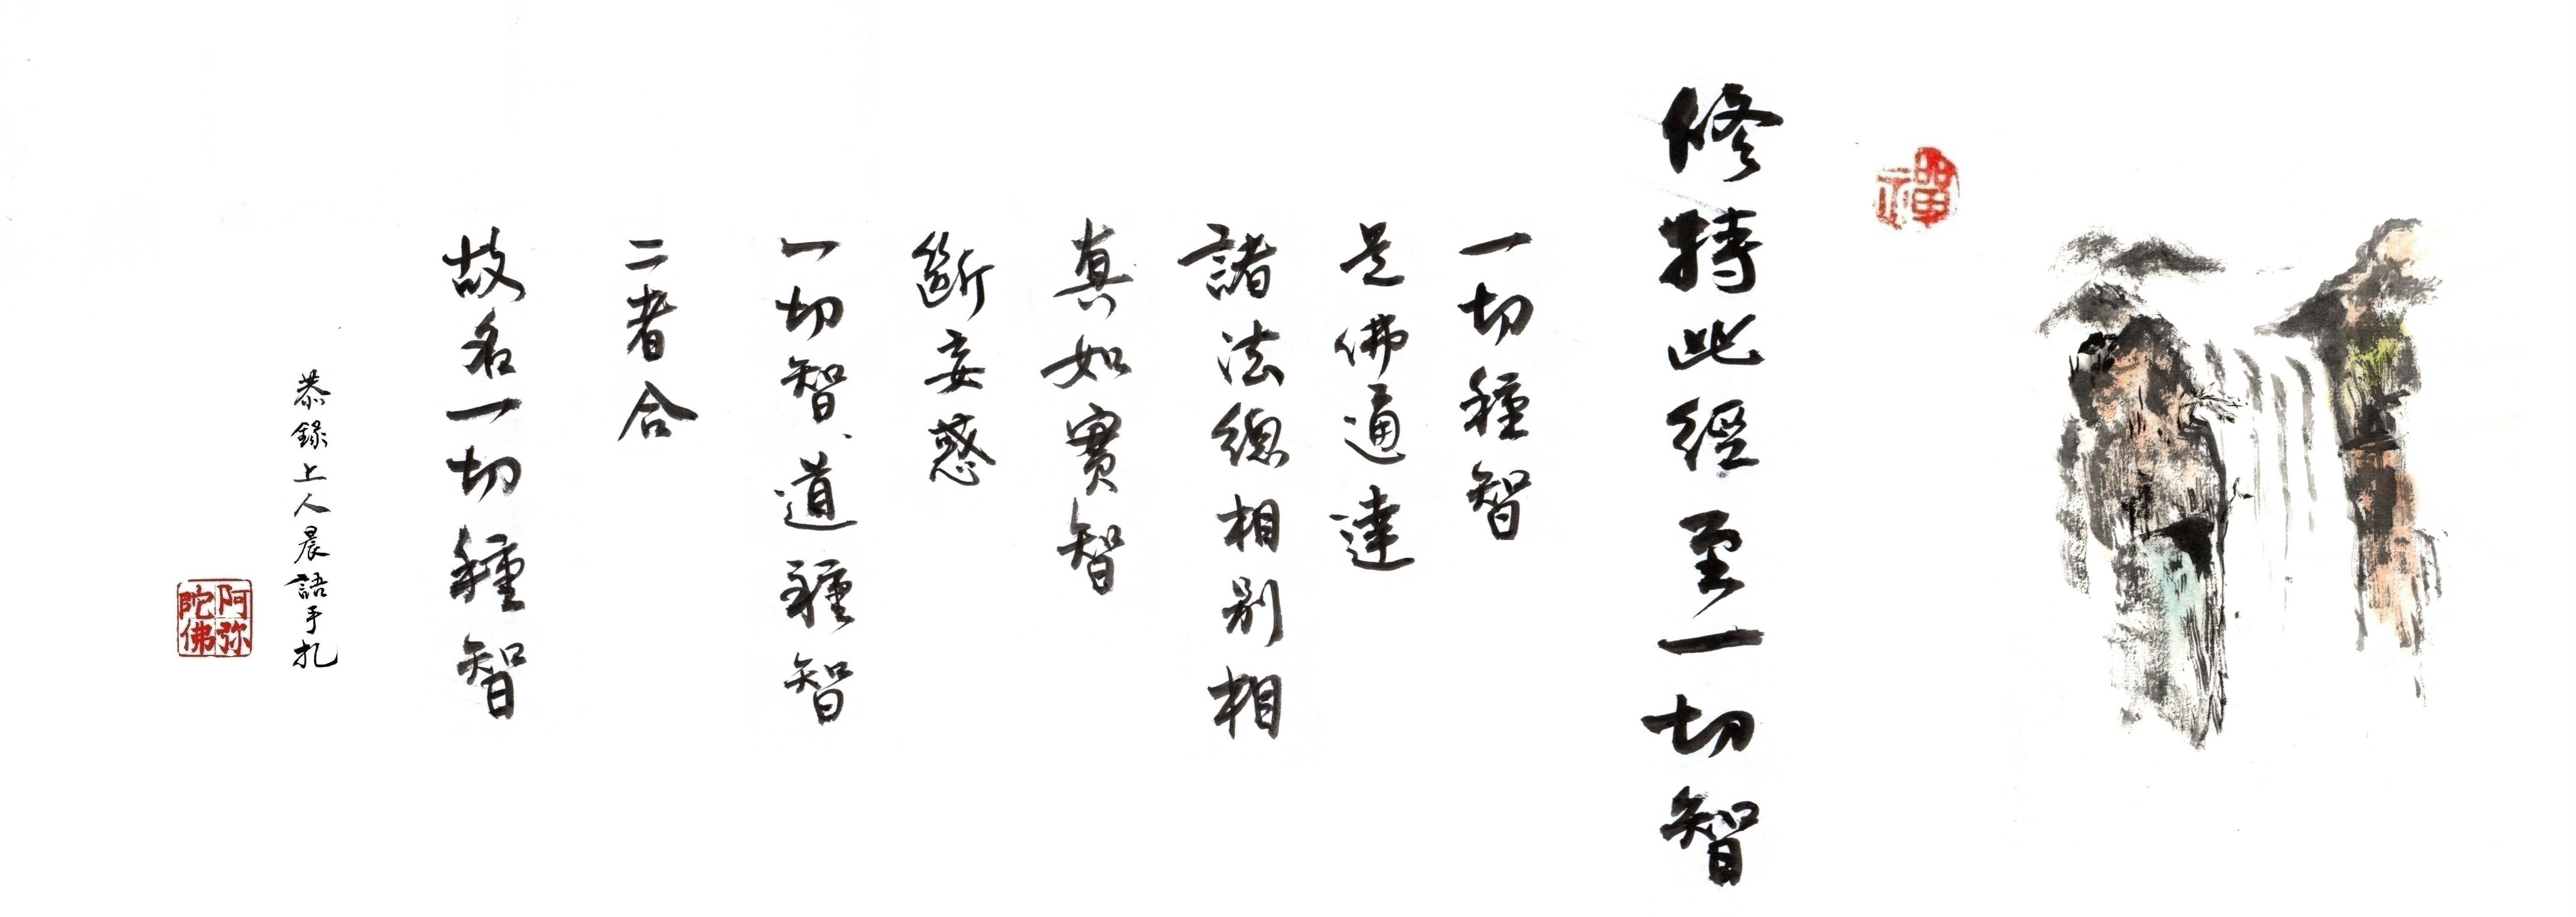 禪
修持此經至一切智
一切種智
是佛通達
諸法總相別相
真如實智
斷妄惑
一切智、道種智
二者合
故名一切種智
恭錄上人晨語手扎
阿弥
陀佛